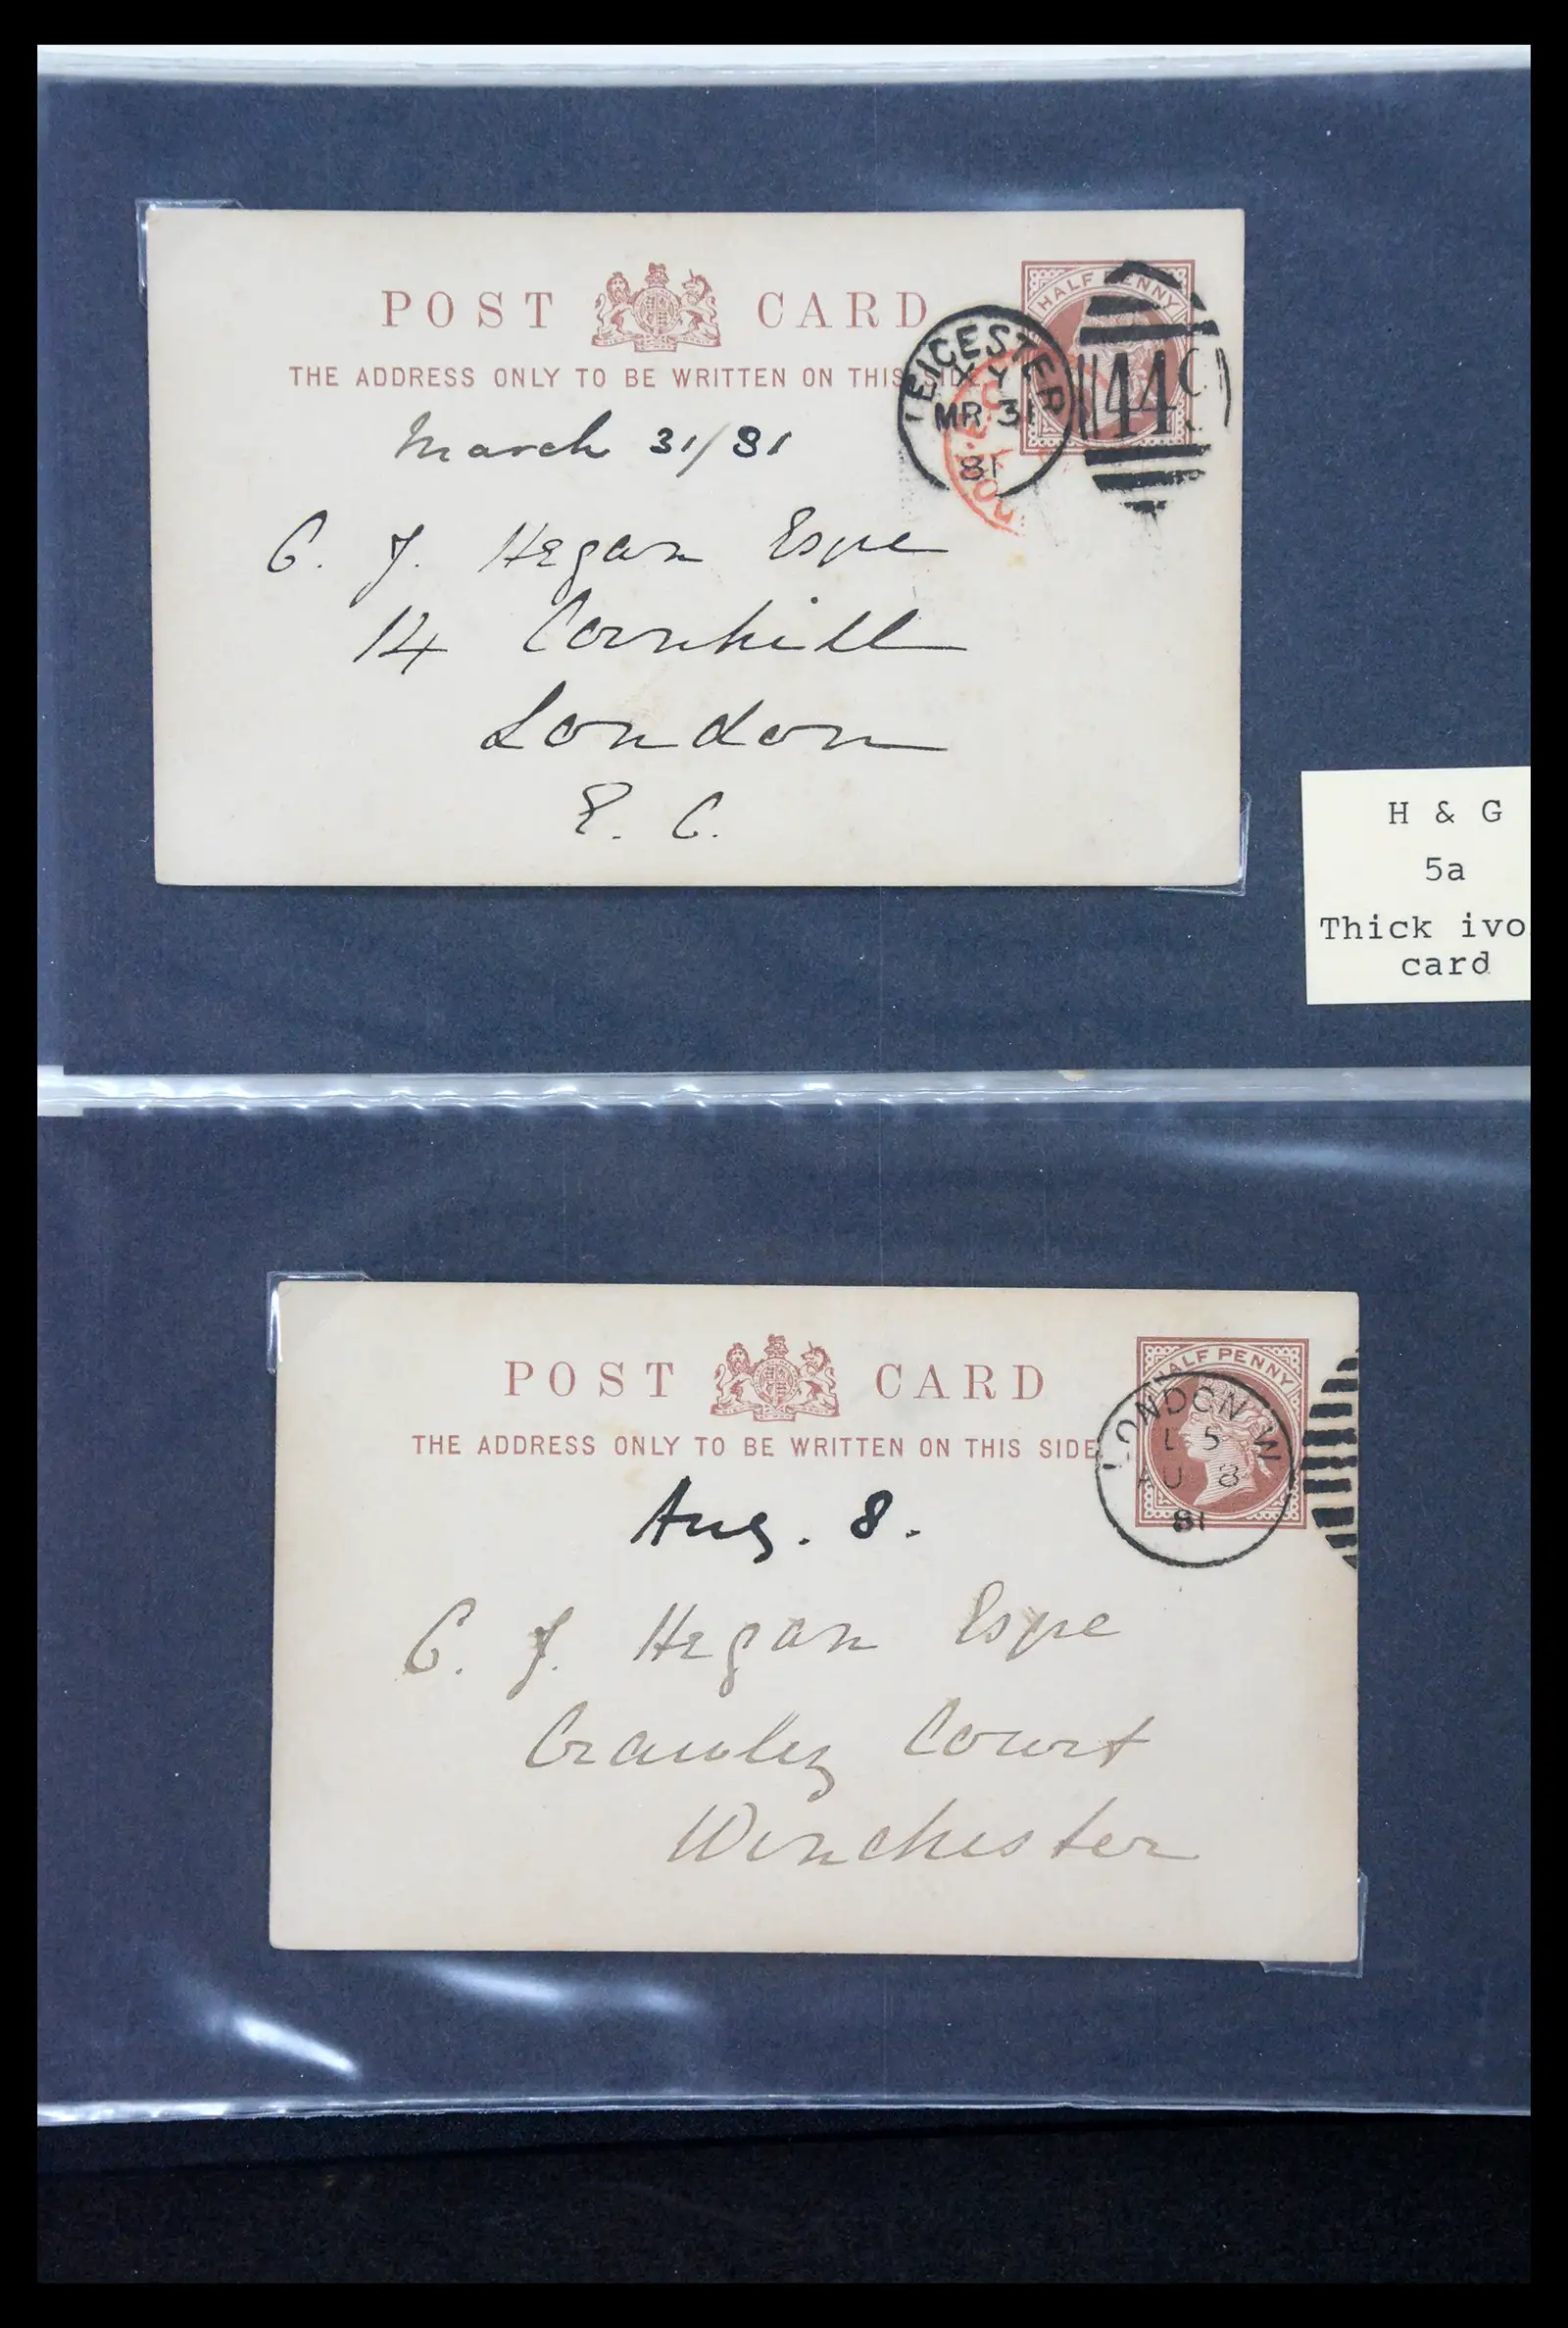 POST CARD
THE ADDRESS ONLY TO BE WRITTEN ON THIS SIDE
HALF PENNY
LEICESTER
X Y
MR 31
81
449
March 31/81
C. J. Hegan Esqre
14 Cornhill
London
E. C.
H & G
5a
Thick ivo
card
POST CARD
THE ADDRESS ONLY TO BE WRITTEN ON THIS SIDE
HALF PENNY
LONDON W
L 5
AU 8
81
Aug. 8.
C. J. Hegan Esqre
Crawley Court
Winchester